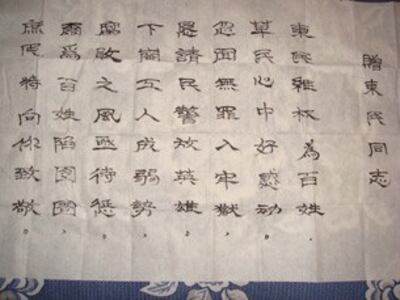 贈東民同志
東民雖为百姓，
草民心中好感动。
忽聞無罪入牢獄，
恳請民警放英雄。
下崗工人成弱势，
腐敗之風亟待惩。
爾為百姓陷囹圄，
庶民特向你致敬。